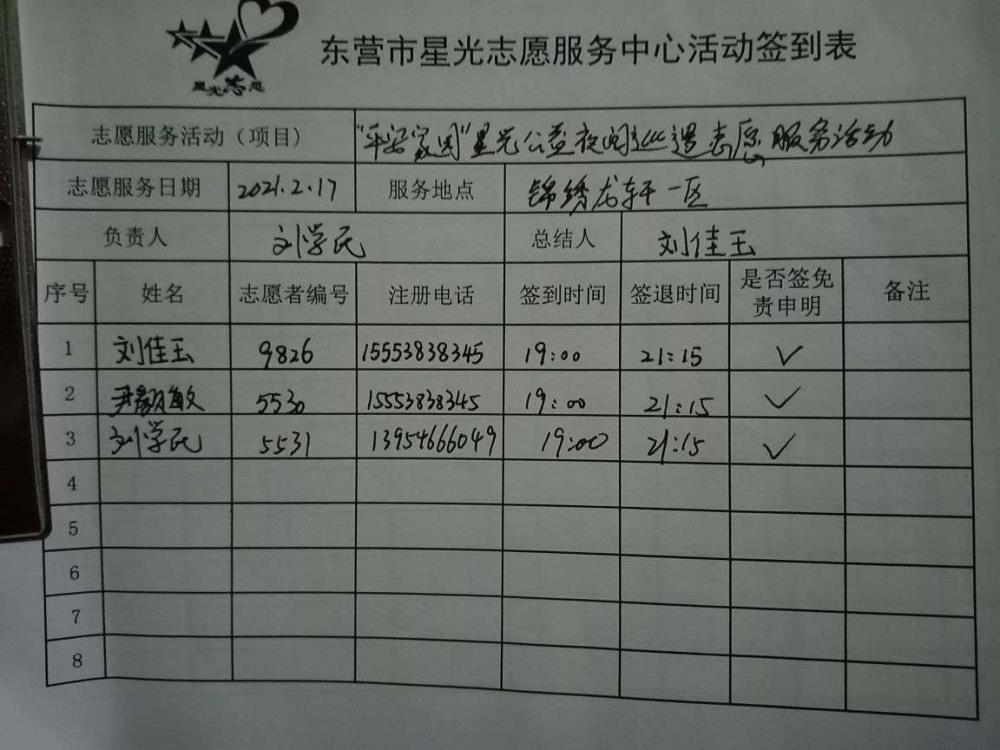 星光志愿
东营市星光志愿服务中心活动签到表
志愿服务活动（项目） "平安家园"星光公益夜间巡逻志愿服务活动
志愿服务日期 2021.2.17 服务地点 锦绣龙轩一区
负责人 刘学民 总结人 刘佳玉
序号 姓名 志愿者编号 注册电话 签到时间 签退时间 是否签免责申明 备注
1 刘佳玉 9826 15553838345 19:00 21:15 ✓
2 尹翻敏 5530 15553838345 19:00 21:15 ✓
3 刘学民 5531 13954666049 19:00 21:15 ✓
4
5
6
7
8